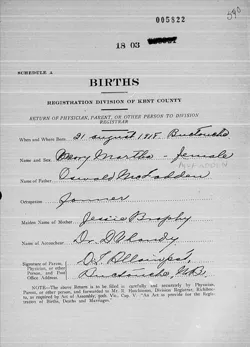 005822
590
18 03
SCHEDULE A
BIRTHS
REGISTRATION DIVISION OF KENT COUNTY
RETURN OF PHYSICIAN, PARENT, OR OTHER PERSON TO DIVISION
REGISTRAR
When and Where Born 21 August 1918 Buctouche
Name and Sex Mary Martha - female
Name of Father Oswald McFadden
Occupation Farmer
Maiden Name of Mother Jessie Brophy
Name of Accoucheur Dr. D
Signature of Parent,
Physician, or other
Person, and Post
Office Address.
Buctouche, N.B.
NOTE.—The above Return is to be filled in carefully and exclusively by Physician,
Parent, or other Person, and forwarded to Mr. Hutchinson, Division Registrar, Richibucto,
as required by Act of Assembly, Vic., Cap. V. "An Act to provide for the Registration
of Births, Deaths and Marriages."